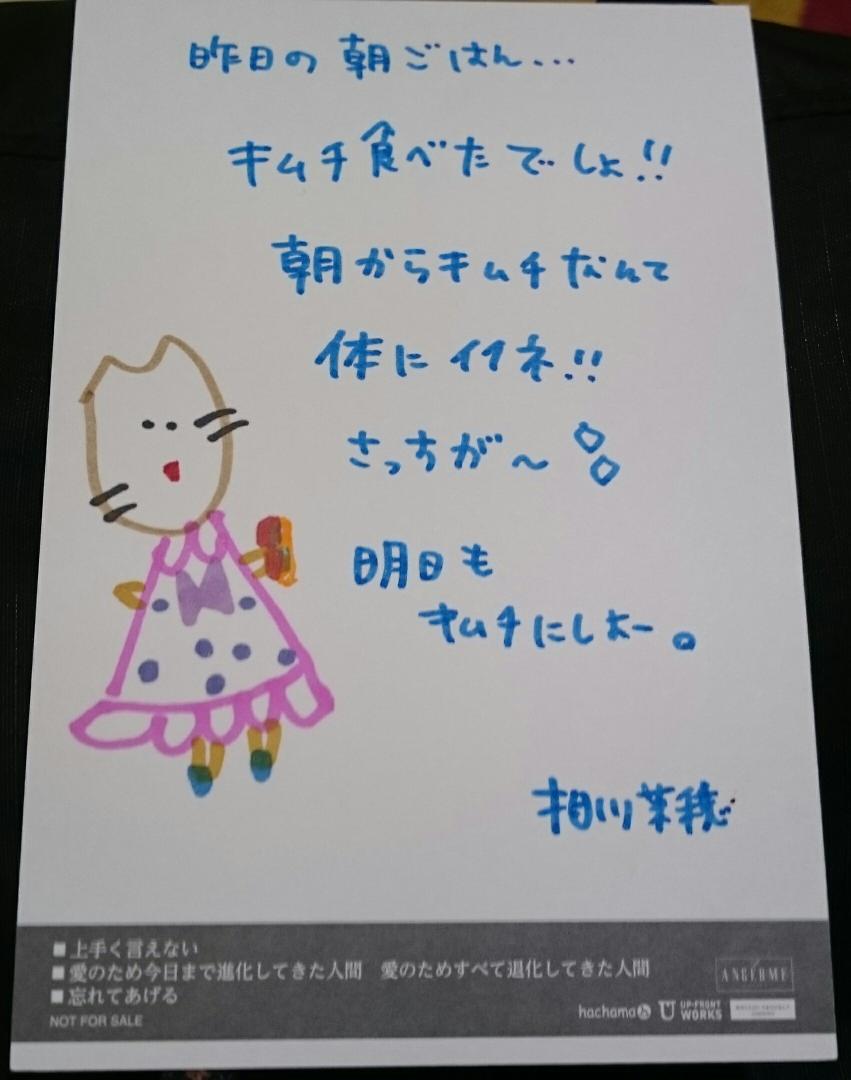 昨日の朝ごはん...
キムチ食べたでしょ!!
朝からキムチなんて
体にイイネ!!
さっちが〜
明日も
キムチにしよー。
相川茉穂
■上手く言えない
■愛のため今日まで進化してきた人間　愛のためすべて退化してきた人間
■忘れてあげる
ANGERME
NOT FOR SALE
hachama
UP-FRONT WORKS